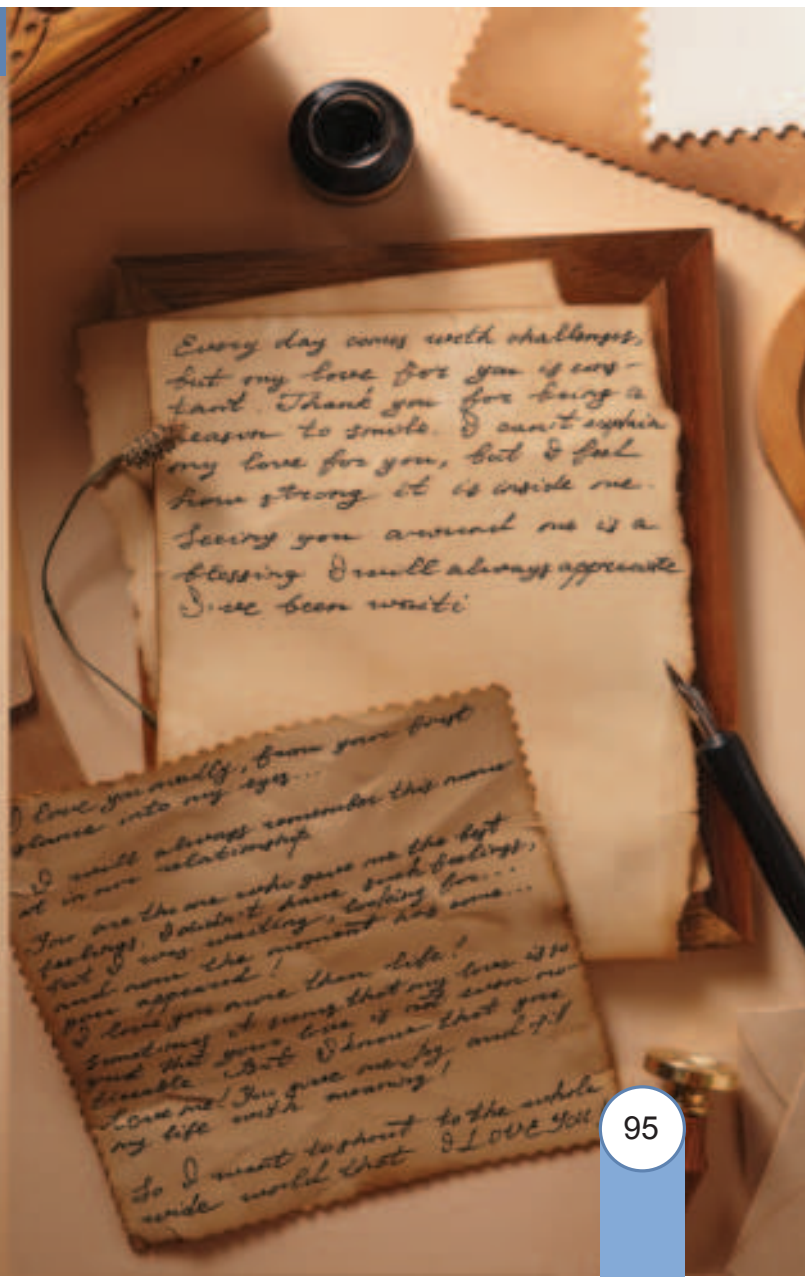 Every day comes with challenges,
but my love for you is cons-
tant. Thank you for being a
reason to smile. I can't explain
my love for you, but I feel
how strong it is inside me.
Seeing you around me is a
blessing I will always appreciate
I've been waiti
I love you madly, from your first
glance into my eyes...
I will always remember this mome
nt in our relationship
You are the one who gave me the best
feelings. I didn't have such feelings,
but I was waiting, looking for...
and now the moment has come...
you appeared!
I love you more than life!
Sometimes it seems that my love is so
great that your love is not even no-
ticeable. But I know that you
love me! You give me joy and fill
my life with meaning!
So I want to shout to the whole
wide world that I LOVE YOU
95